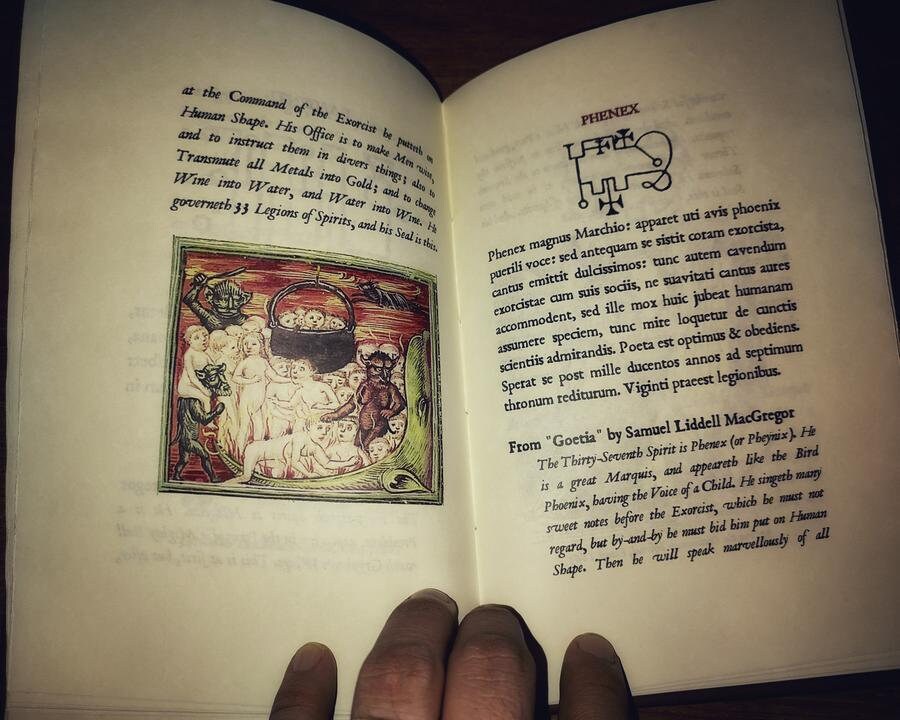 at the Command of the Exorcist he putteth on
Human Shape. His Office is to make Men wise,
and to instruct them in divers things; also to
Transmute all Metals into Gold; and to change
Wine into Water, and Water into Wine. He
governeth 33 Legions of Spirits, and his Seal is this.
PHENEX
Phenex magnus Marchio: apparet uti avis phoenix
puerili voce: sed antequam se sistit coram exorcista,
cantus emittit dulcissimos: tunc autem cavendum
exorcistae cum suis sociis, ne suavitati cantus aures
accommodent, sed ille mox huic jubeat humanam
assumere speciem, tunc mire loquetur de cunctis
scientiis admirandis. Poeta est optimus & obediens.
Sperat se post mille ducentos annos ad septimum
thronum rediturum. Viginti praeest legionibus.
From "Goetia" by Samuel Liddell MacGregor
The Thirty-Seventh Spirit is Phenex (or Pheynix). He
is a great Marquis, and appeareth like the Bird
Phoenix, having the Voice of a Child. He singeth many
sweet notes before the Exorcist, which he must not
regard, but by-and-by he must bid him put on Human
Shape. Then he will speak marvellously of all